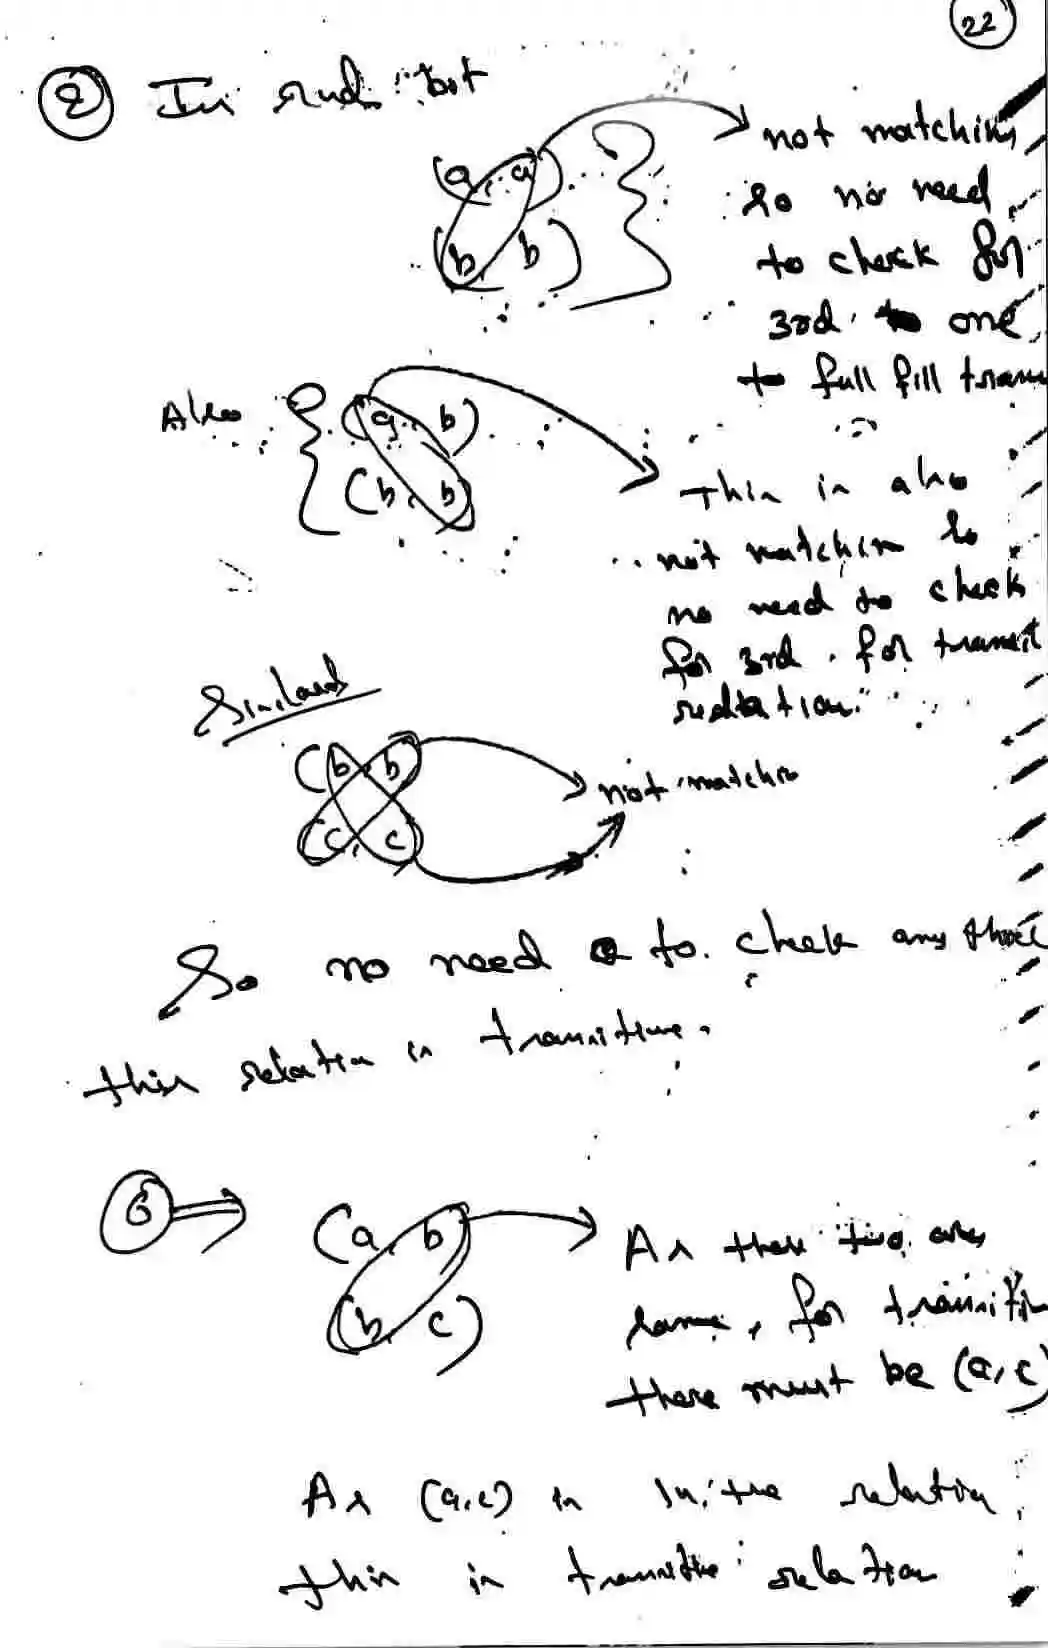 22
② In
(a, a)
(b, b)
not matching
so no need
to check for
3rd one
to full fill
Also
(a, b)
(b, b)
This is also
not
so
no need to check
for 3rd . for
relation.
(b, b)
(c, c)
not
So no need to check any
this relation is transitive.
6 ⇒ (a, b)
(b, c)
As these two are
same, for
there must be (a, c)
As (a, c) is in the relation
this is transitive relation